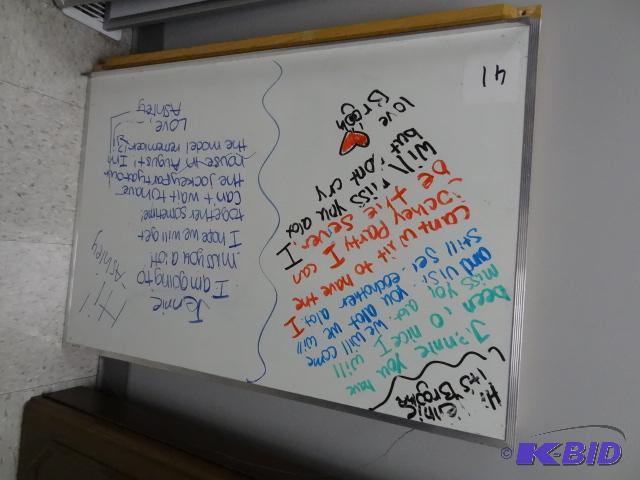 Hi Jennie
it's Brooke
Jennie you have
been so nice I will
miss you alot. we will come
and visit you alot we will
still see eachother alot. I
cant wait to have the
Jockey Party I can
be the server. I
will miss you alot
but dont cry
love
41
Hi!
-Ashley
Jennie
I am going to
miss you a lot!
I hope we will get
together sometime!
Can't wait to have
the Jockey party at our
house in August! In
the model remember?
Love,
Ashley
© K-BID